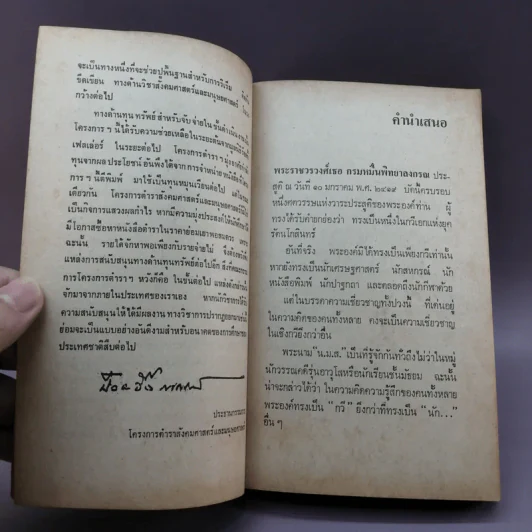 จะเป็นทางหนึ่งที่จะช่วยปูพื้นฐานสำหรับการริเริ่ม
ขีดเขียน ทางด้านวิชาสังคมศาสตร์และมนุษยศาสตร์
กว้างต่อไป
ทางด้านทุนทรัพย์สำหรับจับจ่ายในขั้นดำเนินงาน
โครงการ ฯ นี้ได้รับความช่วยเหลือในระยะต้นจากมูลนิธิ
เฟลเลอร์ ในระยะต่อไป โครงการตำรา ฯ มุ่ง
ทุนจากผลประโยชน์ อันพึงได้จาก การจำหน่าย
การ ฯ นี้ตีพิมพ์ มาใช้เป็นทุนหมุนเวียนต่อไป
เดียวกัน โครงการตำราสังคมศาสตร์และมนุษยศาสตร์
เป็นกิจการแสวงผลกำไร หากมีความมุ่งประสงค์
มีโอกาสซื้อหาหนังสือตำราในราคาย่อมเยาพอสมควร
ฉะนั้น รายได้จักหาพอเพียงกับรายจ่ายไม่
แหล่งการสนับสนุนทางด้านทุนทรัพย์ต่อไปอีก
การโครงการตำรา ฯ หวังก็คือ ในขั้นต่อไป
จักมาจากภายในประเทศของเราเอง
ความสนับสนุนให้ได้มีผลงาน ทางวิชาการปรากฏ
ย่อมจะเป็นแบบอย่างอันดีงามสำหรับอนาคตของการศึกษา
ประเทศชาติสืบต่อไป
ประธานกรรมการ
โครงการตำราสังคมศาสตร์และมนุษยศาสตร์
คำนำเสนอ
พระราชวรวงศ์เธอ กรมหมื่นพิทยาลงกรณ ประ-
สูติ ณ วันที่ ๑๐ มกราคม พ.ศ. ๒๔๑๙ ปีนี้ครบรอบ
หนึ่งศตวรรษแห่งวาระประสูติของพระองค์ท่าน ผู้
ทรงได้รับคำยกย่องว่า ทรงเป็นหนึ่งในกวีเอกแห่งยุค
รัตนโกสินทร์
อันที่จริง พระองค์มิได้ทรงเป็นเพียงกวีเท่านั้น
หากยังทรงเป็นนักเศรษฐศาสตร์ นักสหกรณ์ นัก
หนังสือพิมพ์ นักปาฐกถา และตลอดถึงนักกีฬาด้วย
แต่ในบรรดาความเชี่ยวชาญทั้งปวงนี้ ที่เด่นอยู่
ในความคิดของคนทั้งหลาย คงจะเป็นความเชี่ยวชาญ
ในเชิงกวียิ่งกว่าอื่น
พระนาม "น.ม.ส." เป็นที่รู้จักกันทั่วถึงไม่ว่าในหมู่
นักวรรณคดีรุ่นอาวุโสหรือนักเรียนชั้นมัธยม ฉะนั้น
น่าจะกล่าวได้ว่า ในความคิดความรู้สึกของคนทั้งหลาย
พระองค์ทรงเป็น "กวี" ยิ่งกว่าที่ทรงเป็น "นัก..."
อื่น ๆ